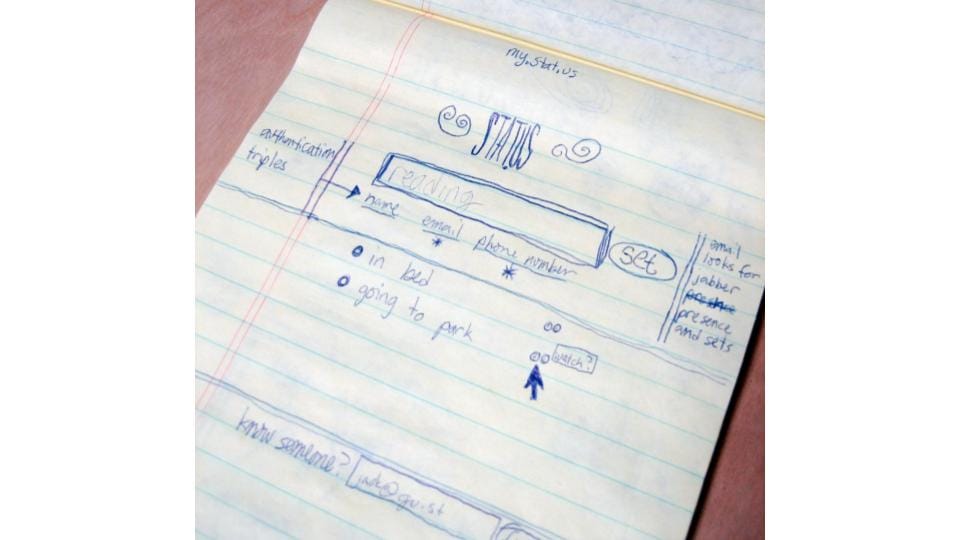 my.stat.us
STATUS
authentication
triples
reading
name email phone number
* *
set
email
looks for
jabber
presence
presence
and sets
in bed
going to park
watch?
know someone?